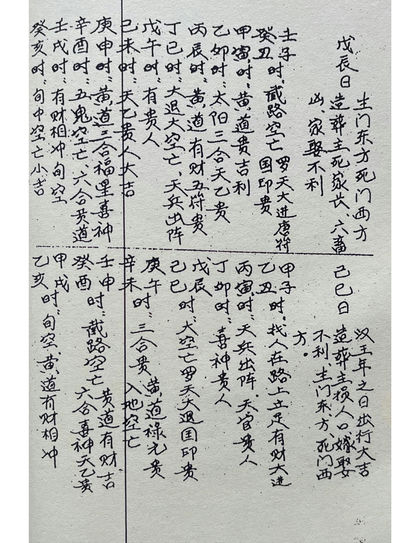 戊辰日
生门东方死门西方
造葬主死家长、六畜
凶 家娶不利
壬子时:截路空亡 罗天大进唐符
癸丑 国印贵
甲寅时:黄道贵吉利
乙卯时:太阳三合天乙贵
丙辰时:黄道有财五符贵
丁巳时:大退大空亡,天兵出阵
戊午时:有贵人
己未时:天乙贵人大吉
庚申时:黄道三合福星喜神
辛酉时:五鬼空亡 六合黄道
壬戌时:有财相冲旬空
癸亥时:旬中空亡小吉
己巳日
汉王年之日出行大吉
造葬主损人口嫁娶
不利 生门东方 死门西
方。
甲子时:找人在路上立定有财大进
乙丑
丙寅时:天兵出阵、天官贵人
丁卯时:喜神贵人
戊辰时:大空亡罗天大退国印贵
己巳
庚午时: 黄道禄元贵
辛未 三合贵 入地空亡
壬申时: 黄道有财吉
癸酉 截路空亡 六合喜神天乙贵
甲戌时:旬空、黄道有财相冲
乙亥